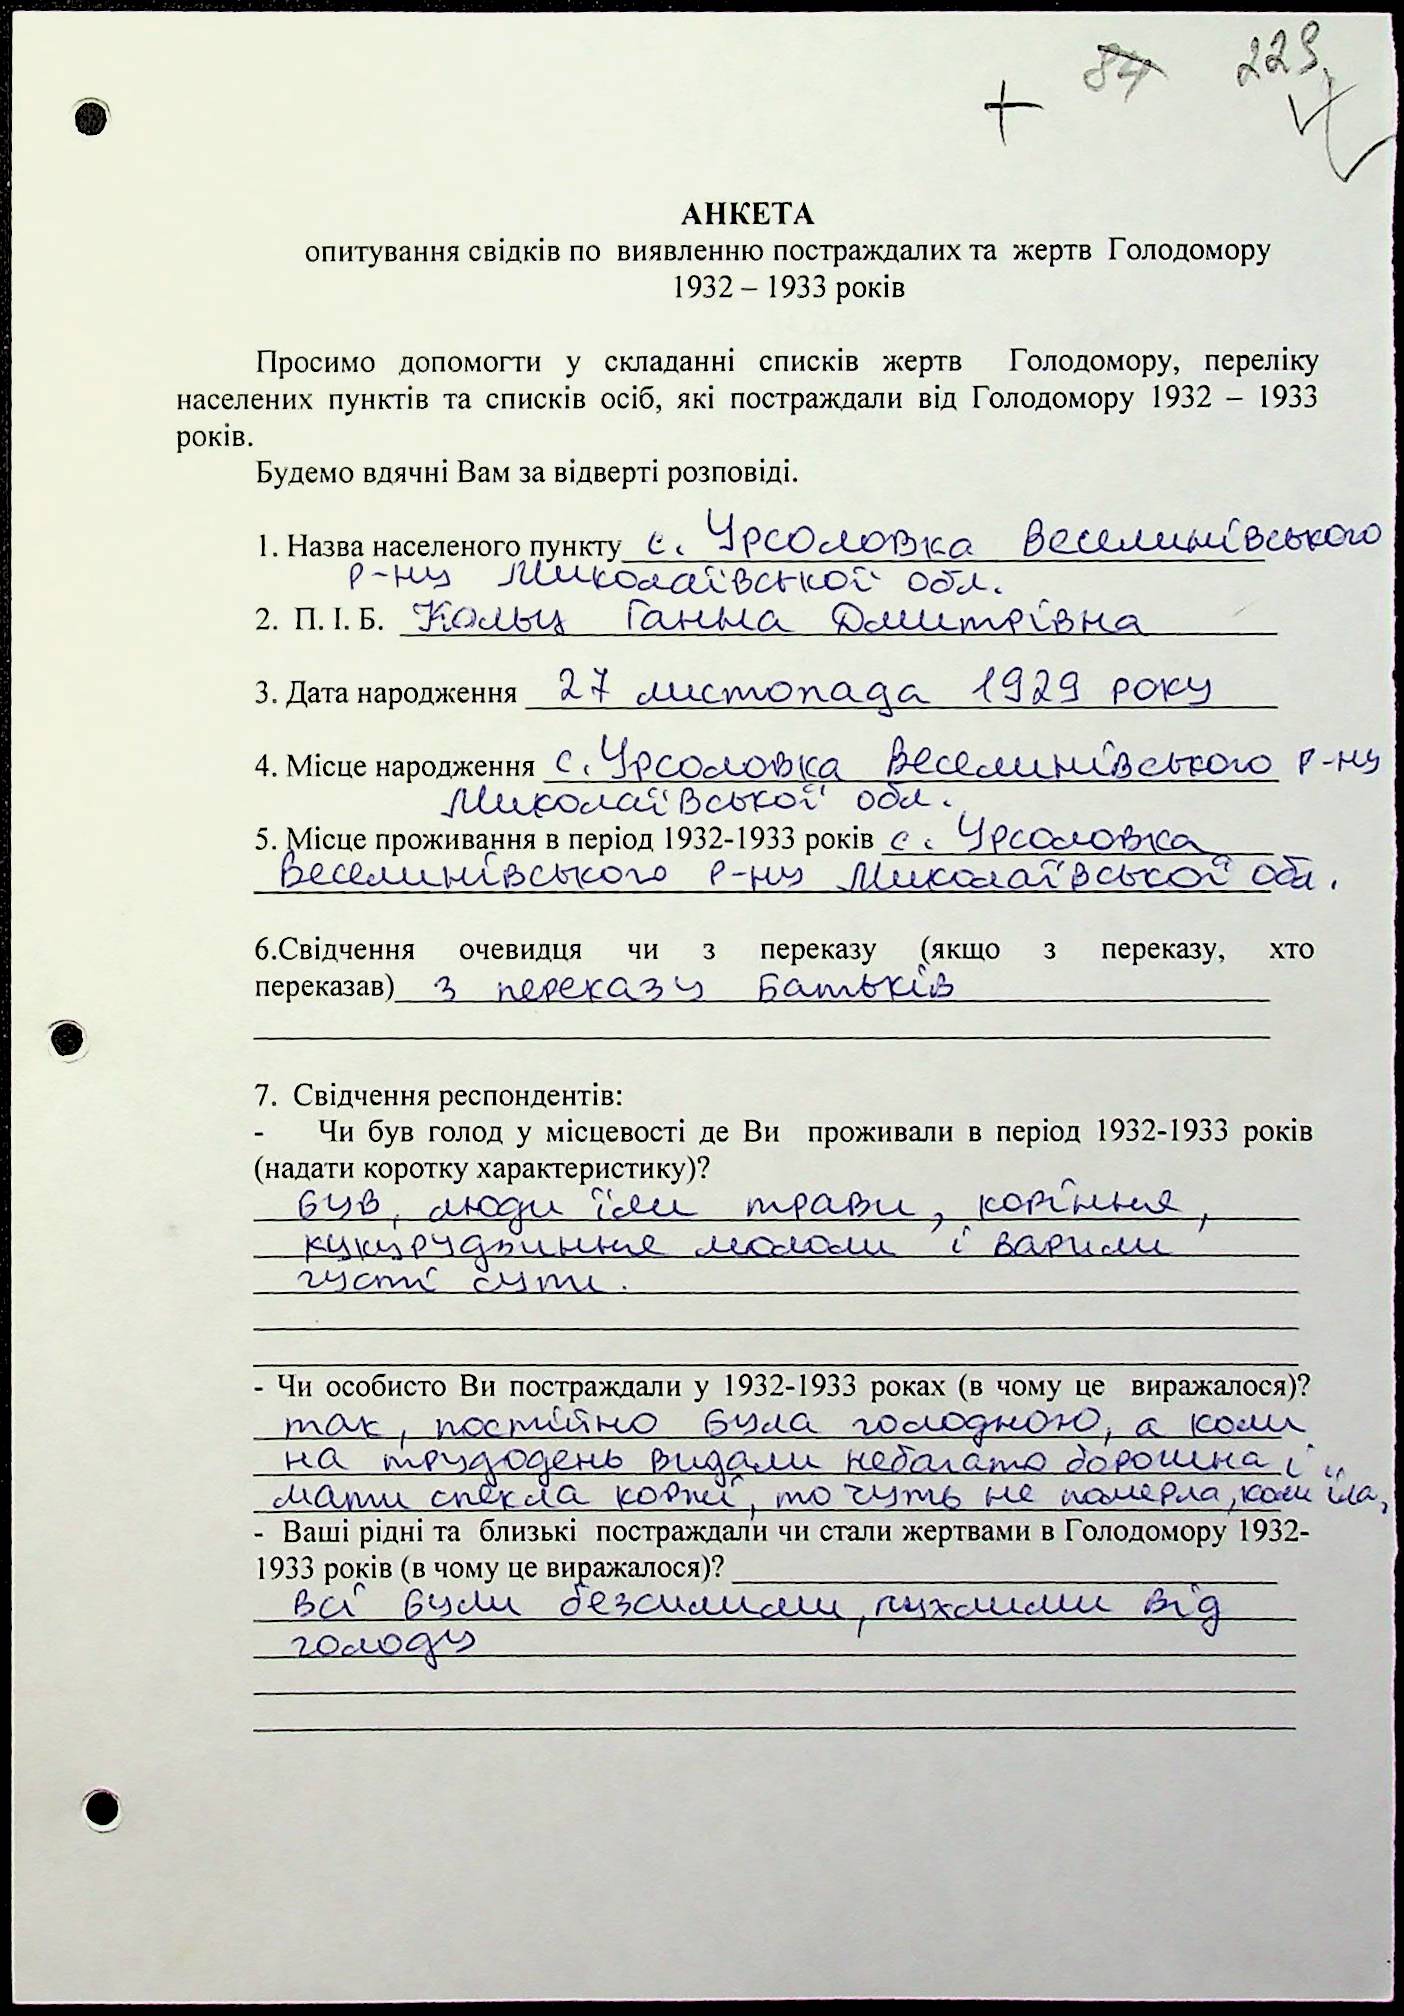 84 229
+
АНКЕТА
опитування свідків по виявленню постраждалих та жертв Голодомору
1932 – 1933 років
Просимо допомогти у складанні списків жертв Голодомору, переліку
населених пунктів та списків осіб, які постраждали від Голодомору 1932 – 1933
років.
Будемо вдячні Вам за відверті розповіді.
1. Назва населеного пункту с. Урсоловка Веселинівського
р-ну Миколаївської обл.
2. П. І. Б. Кольц Ганна Дмитрівна
3. Дата народження 27 листопада 1929 року
4. Місце народження с. Урсоловка Веселинівського р-ну
Миколаївської обл.
5. Місце проживання в період 1932-1933 років с. Урсоловка
Веселинівського р-ну Миколаївської обл.
6.Свідчення очевидця чи з переказу (якщо з переказу, хто
переказав) з переказу батьків
7. Свідчення респондентів:
- Чи був голод у місцевості де Ви проживали в період 1932-1933 років
(надати коротку характеристику)?
був, люди їли трави, коріння,
кукурудзиння мололи і варили
густі супи.
- Чи особисто Ви постраждали у 1932-1933 роках (в чому це виражалося)?
так, постійно була голодною, а коли
на трудодень видали небагато борошна і
мати спекла коржі, то чуть не померла, коли їла,
- Ваші рідні та близькі постраждали чи стали жертвами в Голодомору 1932-
1933 років (в чому це виражалося)?
всі були безсилими, пухлими від
голоду